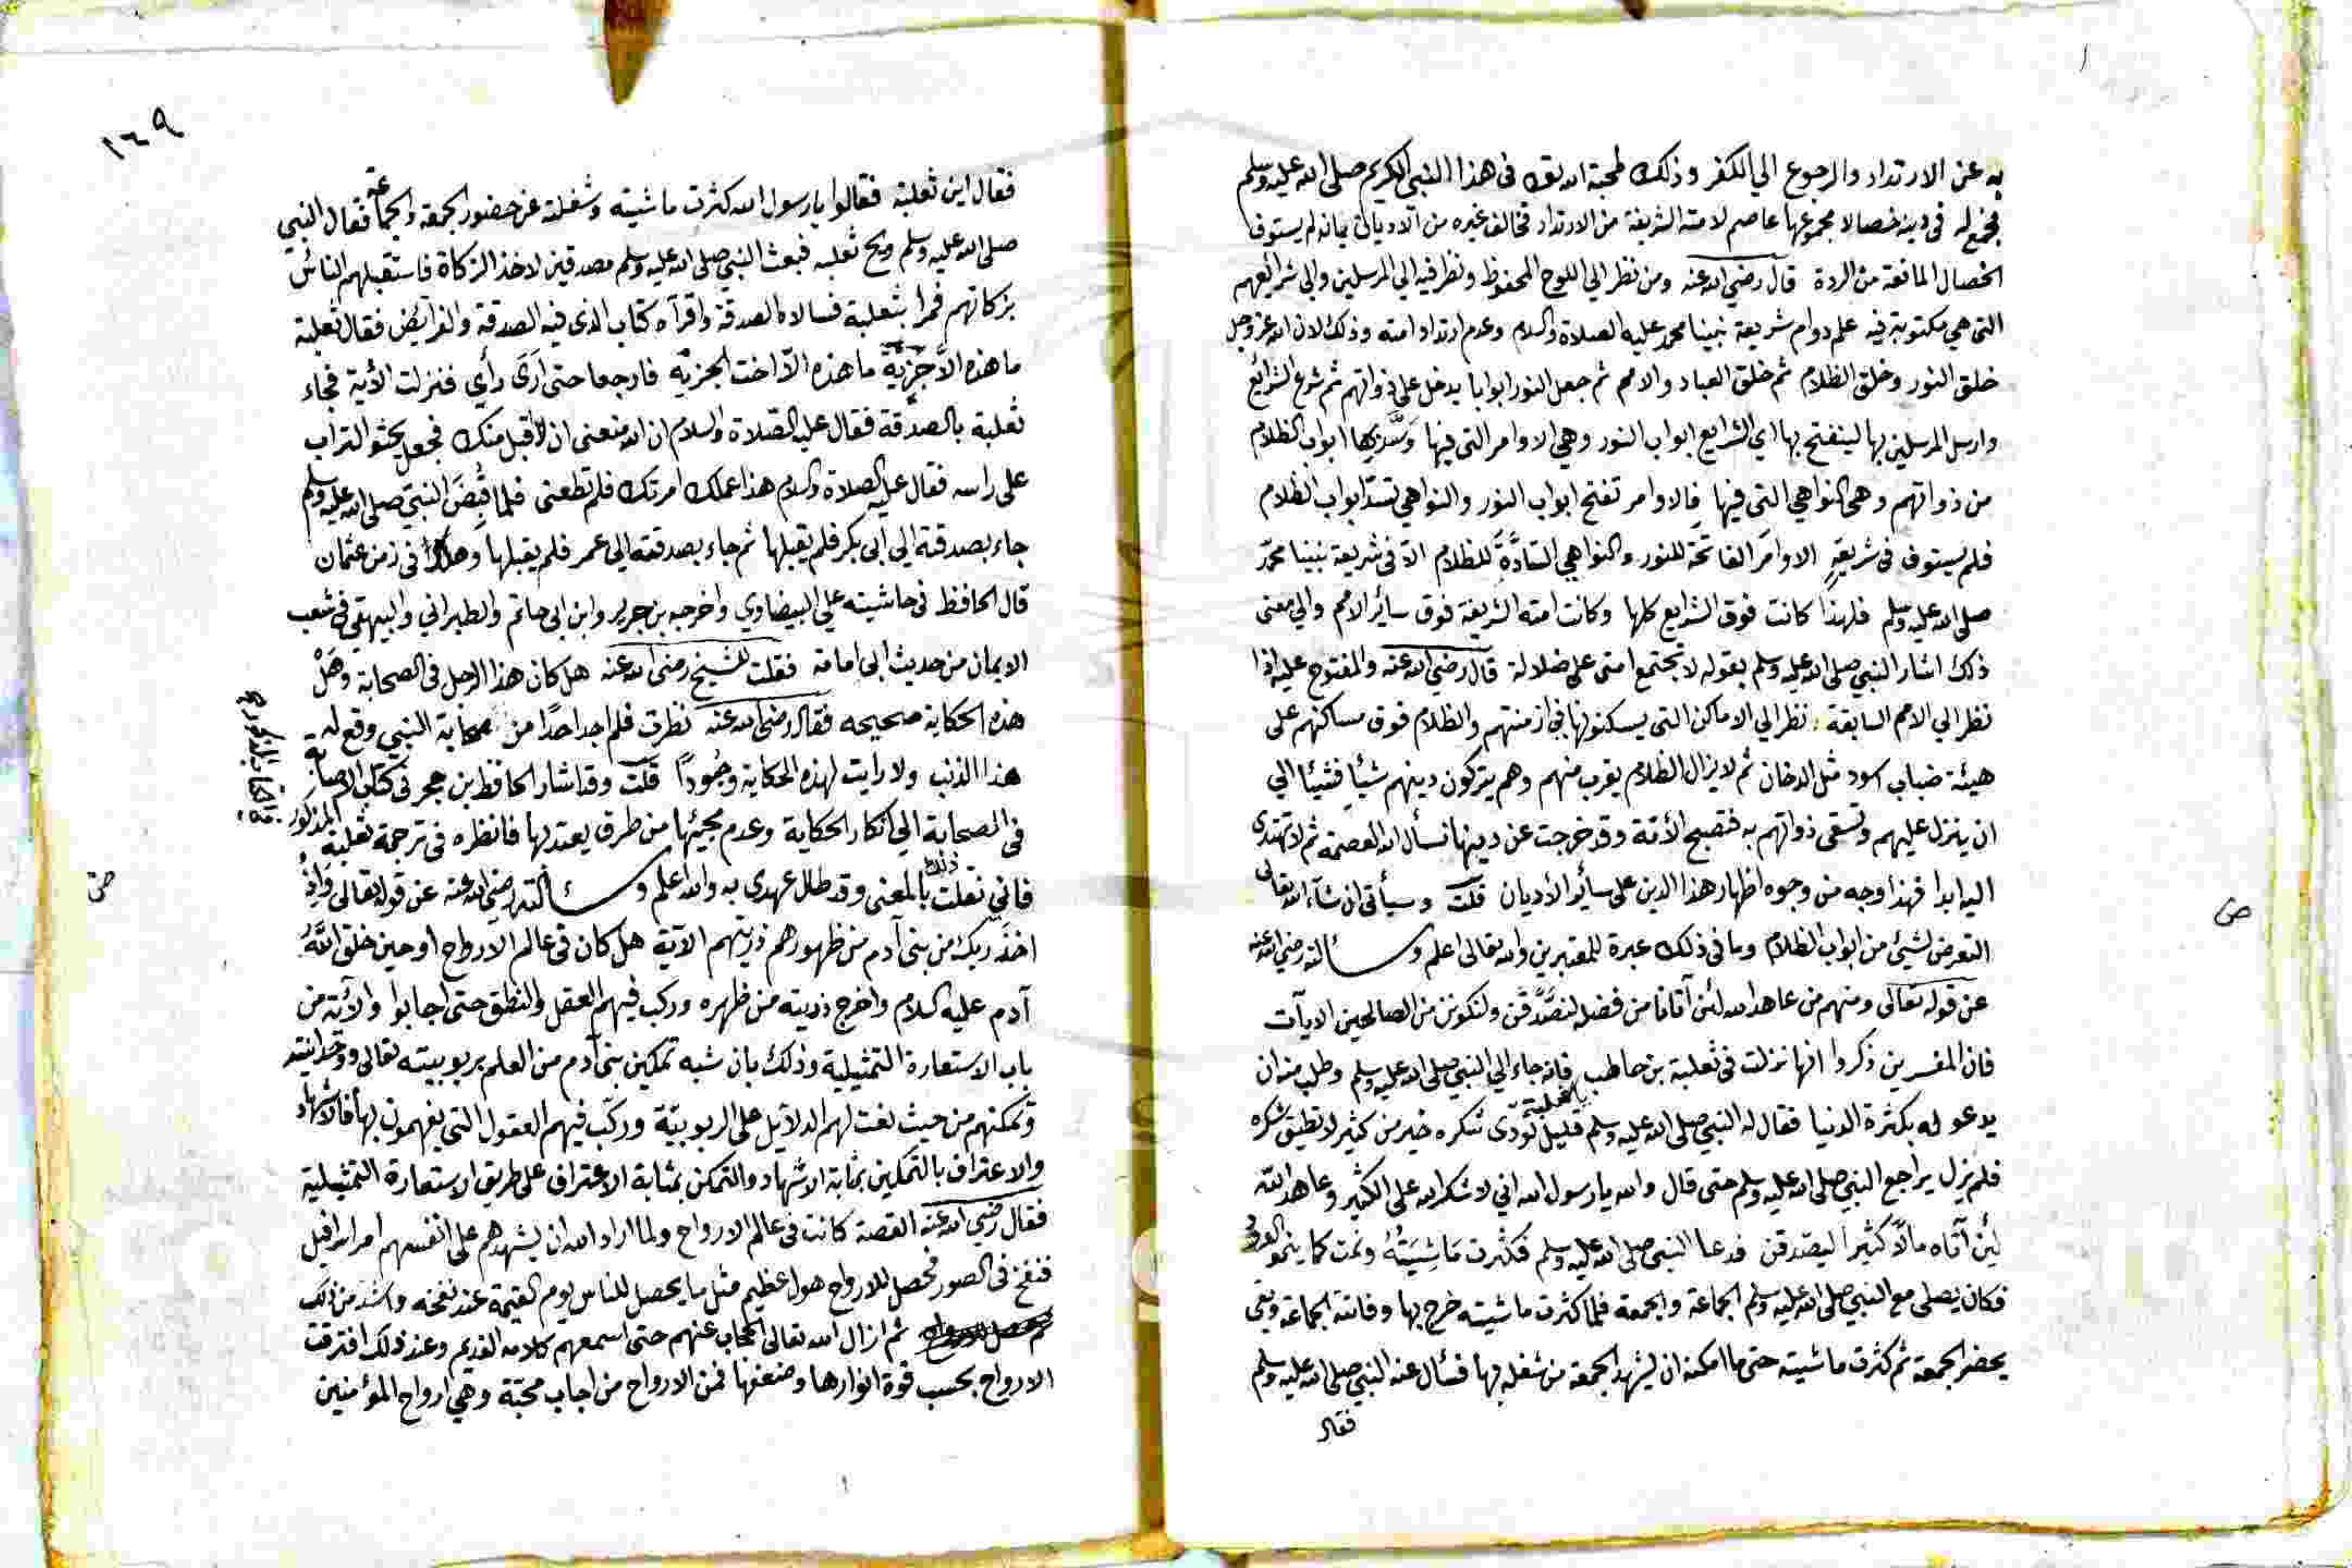 به عن الارتداد والرجوع الي الكفر وذلك لمحبة الله تعالى فى هذا النبي الكريم صلى الله عليه وسلم
فجمع له فى دينه خصالا مجموعها عاصم لامته الشريفة من الارتداد فخالف غيره من الاديان بانه لم يستوف
الخصال المانعة من الردة قال رضي الله عنه ومن نظر الي اللوح المحفوظ ونظر فيه الي المرسلين والي شرائعهم
التى هي مكتوبة فيه علم دوام شريعة نبينا محمد عليه الصلاة والسلام وعدم ارتداد امته وذلك لان الله عز وجل
خلق النور وخلق الظلام ثم خلق العباد والامم ثم جعل النور ابوابا يدخل على ذواتهم ثم شرع الشرائع
وارسل المرسلين بها لينفتح بها اي الشرايع ابواب النور وهي الاوامر التى فيها وسد بها ابواب الظلام
من ذواتهم وهى النواهي التى فيها فالاوامر تفتح ابواب النور والنواهي تسد ابواب الظلام
فلم يستوف فى شريعة الاوامر الفاتحة للنور والنواهي السادة للظلام الا فى شريعة نبينا محمد
صلى الله عليه وسلم فلهذا كانت فوق الشرايع كلها وكانت امته الشريفة فوق سائر الامم والي معنى
ذلك اشار النبي صلى الله عليه وسلم بقوله لا تجتمع امتى على ضلالة قال رضي الله عنه والمفتوح عليه اذا
نظر الي الامم السابقة نظر الي الاماكن التى يسكنونها فى ازمنتهم والظلام فوق مساكنهم على
هيئة ضباب اسود مثل الدخان ثم لا يزال الظلام يقرب منهم وهم يتركون دينهم شيأ فشيئا الي
ان ينزل عليهم وتسقى ذواتهم به فتصبح الأمة وقد خرجت عن دينها نسأل الله العصمة ثم لا تهتدى
اليه ابدا فهذا وجه من وجوه اظهار هذا الدين على سائر الأديان قلت وسيأتى ان شاء الله تعالى
التعرض لشيئ من ابواب الظلام وما فى ذلك عبرة للمعتبرين والله تعالى اعلم وسألته رضي الله عنه
عن قوله تعالى ومنهم من عاهد الله لئن آتانا من فضله لنصدقن ولنكونن من الصالحين الايآت
فان المفسرين ذكروا انها نزلت فى ثعلبة بن حاطب فانه جاء الي النبي صلى الله عليه وسلم وطلب منه ان
يدعو له بكثرة الدنيا فقال له النبي صلى الله عليه وسلم يا ثعلبة قليل تودى شكره خير من كثير لا تطيق شكره
فلم يزل يراجع النبي صلى الله عليه وسلم حتى قال والله يا رسول الله اني لاشكر الله على الكثير وعاهد الله
لئن آتاه مالا كثيرا ليصدقن فدعا النبي صلى الله عليه وسلم فكثرت ماشيته ونمت كما ينمو الدود
فكان يصلى مع النبي صلى الله عليه وسلم الجماعة والجمعة فلما كثرت ماشيته خرج بها وفاتته الجماعة وبقى
يحضر الجمعة ثم كثرت ماشيته حتى ما امكنه ان يشهد الجمعة من شغله بها فسأل عنه النبي صلى الله عليه وسلم
فقال
ص
١٤٩
فقال اين ثعلبة فقالوا يا رسول الله كثرت ماشيته وشغلته عن حضور الجمعة والجماعة فقال النبي
صلى الله عليه وسلم ويح ثعلبه فبعث النبي صلى الله عليه وسلم مصدقين لاخذ الزكاة فاستقبلهم الناس
بزكاتهم فمرا بثعلبة فسالاه الصدقة واقرآه كتاب الذى فيه الصدقة والفرائض فقال ثعلبة
ما هذه الا جزية ما هذه الا اخت الجزية فارجعا حتى ارى رأي فنزلت الأية فجاء
ثعلبة بالصدقة فقال عليه الصلاة والسلام ان الله منعنى ان اقبل منك فجعل يحثو التراب
على راسه فقال عليه الصلاة والسلام هذا عملك امرتك فلم تطعنى فلما قبض النبي صلى الله عليه وسلم
جاء بصدقته الي ابى بكر فلم يقبلها ثم جاء بصدقته الي عمر فلم يقبلها وهلك فى زمن عثمان
قال الحافظ فى حاشيته علي البيضاوي واخرجه بن جرير وابن ابى حاتم والطبراني والبيهقى فى شعب
الايمان من حديث ابى امامة فقلت للشيخ رضي الله عنه هل كان هذا الرجل فى الصحابة وهل
هذه الحكاية صحيحه فقال رضي الله عنه نظرت فلم اجد احدا من صحابة النبي وقع له
هذا الذنب ولا رايت لهذه الحكاية وجودا قلت وقد اشار الحافظ بن حجر فى كتاب الاصابة
فى الصحابة الي انكار الحكاية وعدم مجيئها من طرق يعتد بها فانظره فى ترجمة ثعلبة المذكور
فانى نقلت ذلك بالمعنى وقد طال عهدى به والله اعلم وسألته رضي الله عنه عن قوله تعالى واذ
اخذ ربك من بنى آدم من ظهورهم ذريتهم الآية هل كان فى عالم الارواح او حين خلق الله
آدم عليه السلام واخرج ذريته من ظهره وركب فيهم العقل والنطق حتى اجابوا والأية من
باب الاستعارة التمثيلية وذلك بان شبه تمكين بنى آدم من العلم بربوبيته تعالى ووحدانيته
وتمكنهم من حيث نصب لهم الدلائل على الربوبية وركب فيهم العقول التى يفهمون بها فالاشهاد
والاعتراف بالتمكين بمثابة الاشهاد والتمكن بمثابة الاعتراف على طريق الاستعارة التمثيلية
فقال رضي الله عنه القصة كانت فى عالم الارواح ولما اراد الله ان يشهدهم على انفسهم امر اسرافيل
فنفخ فى الصور فحصل للارواح هول عظيم مثل ما يحصل للناس يوم القيمة عند نفخه واشد من ذلك
ثم ازال الله تعالى الحجاب عنهم حتى اسمعهم كلامه القديم وعند ذلك افترقت
الارواح بحسب قوة انوارها وضعفها فمن الارواح من اجاب محبة وهي ارواح المؤمنين